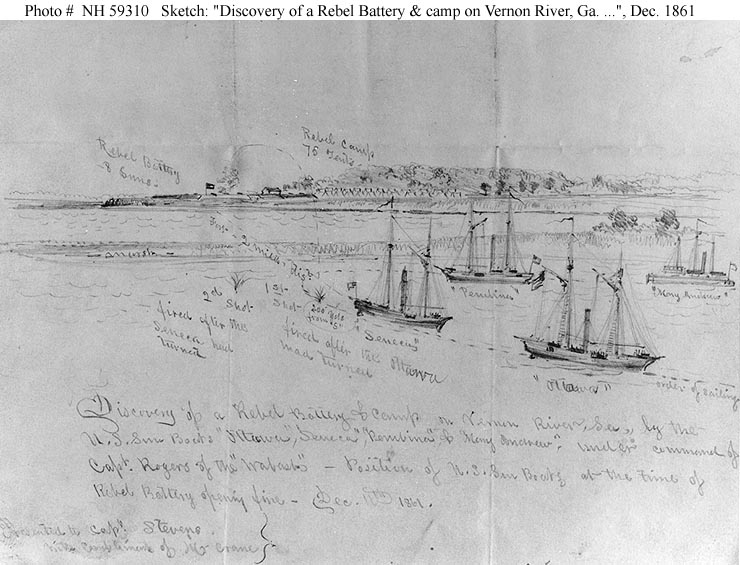 Photo # NH 59310 Sketch: "Discovery of a Rebel Battery & camp on Vernon River, Ga. ...", Dec. 1861
Rebel Camp
75 Tents
Rebel Battery
8 Guns -
2 miles dist.
- marsh -
2d Shot
fired after the
Seneca had
turned
1st Shot
200 yds
from "S"
fired after the Ottawa
had turned
"Seneca"
"Pembina"
"Mary Andrew"
"Ottawa"
order of sailing
Discovery of a Rebel Battery & Camp on Vernon River, Ga., by the
U.S. Gun Boats "Ottawa", "Seneca", "Pembina" & "Mary Andrew", under command of
Capt. Rogers of the "Wabash" - Position of U.S. Gun Boats at the time of
Rebel Battery opening fire - Dec. 1861.
Presented to Capt. Stevens.
with compliments of Mr Crane